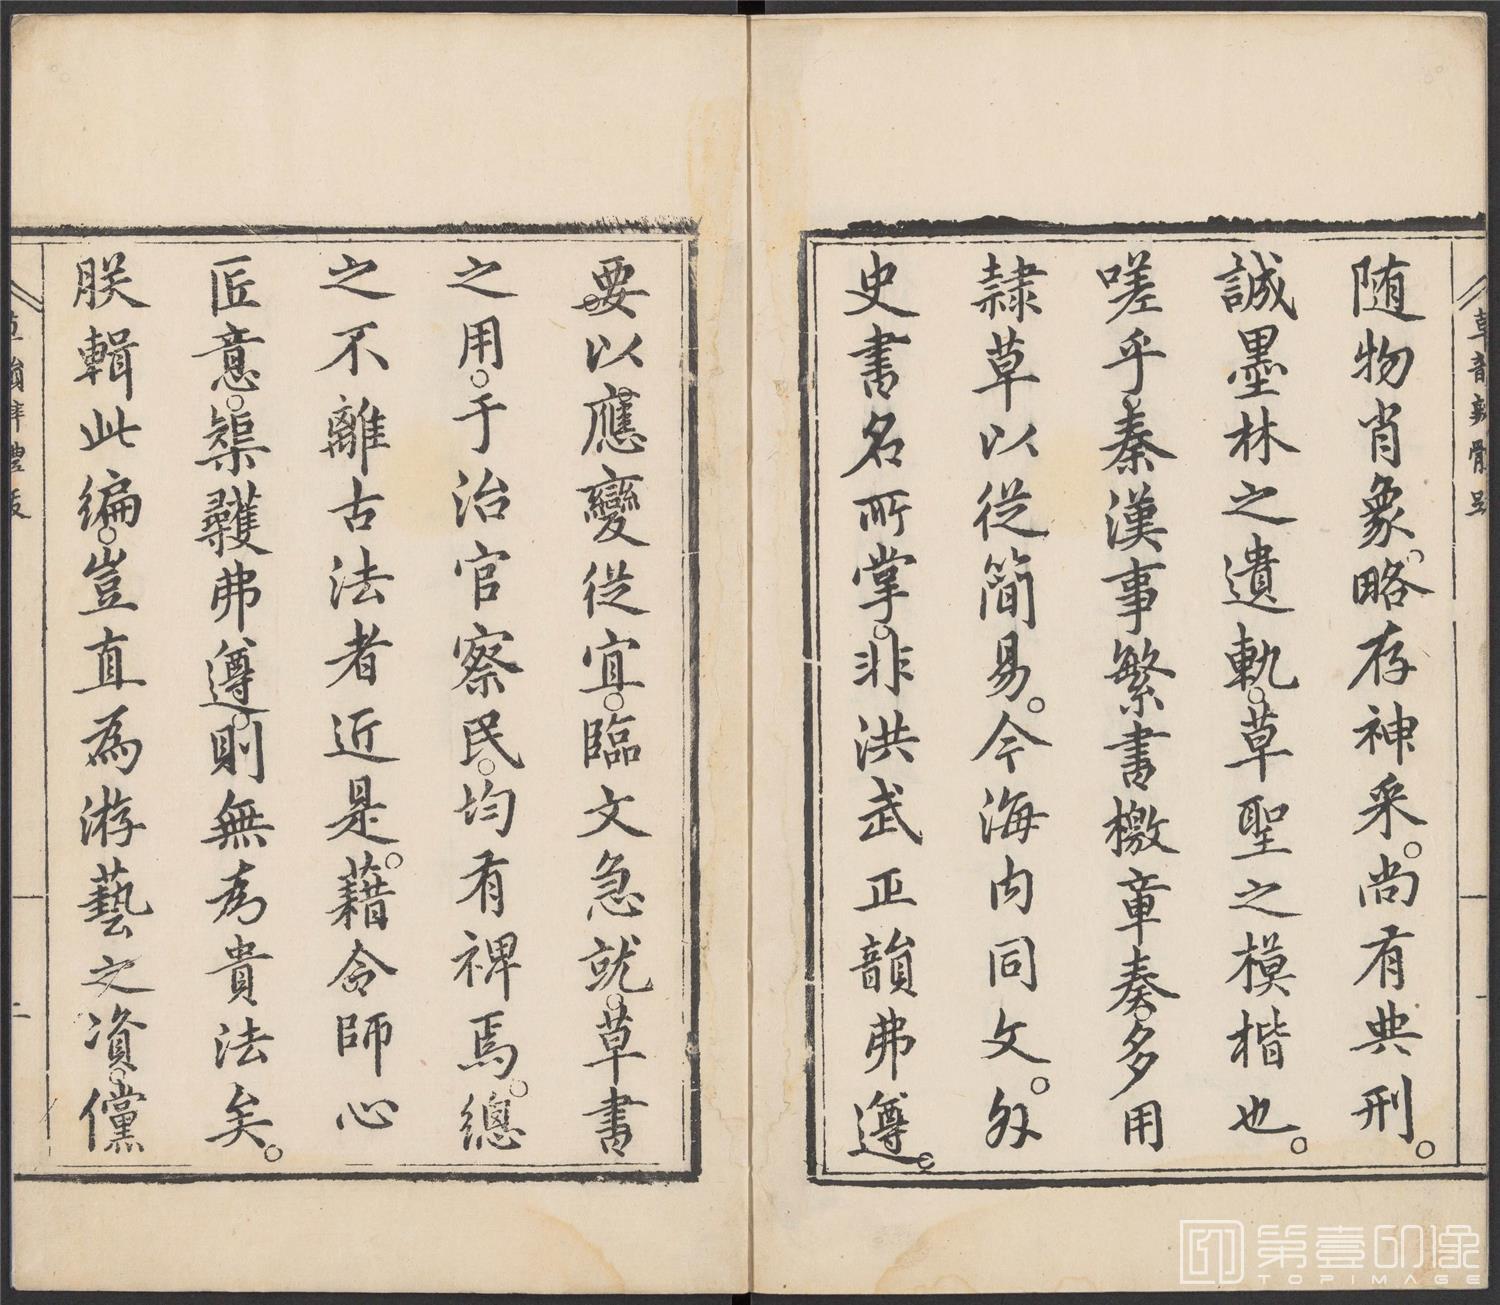 随物肖象。略存神采。尚有典刑。
誠墨林之遺軌。草聖之模楷也。
嗟乎。秦漢事繁。書檄章奏。多用
隸草以從簡易。今海内同文。外
史書名所掌。非洪武正韻弗遵。
要以應變從宜。臨文急就。草書
之用。于治官察民。均有裨焉。總
之不離古法者近是。藉令師心
匠意。榘矱弗遵。則無為貴法矣。
朕輯此編。豈直為游藝之資。儻
二
第壹印像
TOPIMAGE